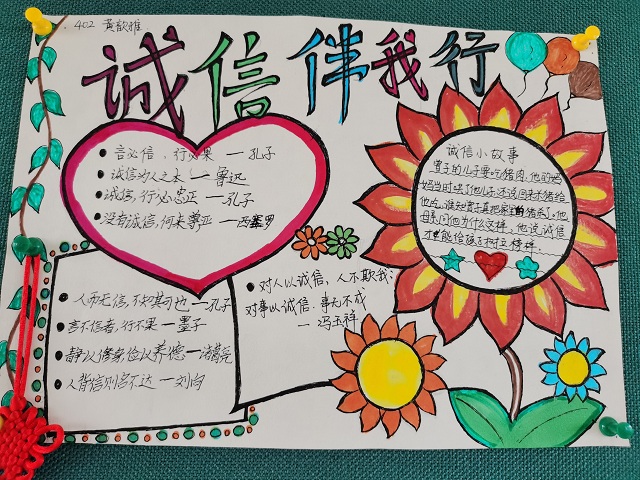 402 黄歆雅
诚信伴我行
言必信，行必果 — 孔子
诚信为人之本 — 鲁迅
诚信，行必忠正 — 孔子
没有诚信，何来尊严 — 西塞罗
人而无信，不知其可也 — 孔子
言不信者，行不果 — 墨子
静以修身俭以养德 — 诸葛亮
人背信则名不达 — 刘向
对人以诚信，人不欺我：
对事以诚信，事无不成
— 冯玉祥
诚信小故事
曾子的儿子要吃猪肉，他的妈
妈当时哄了他儿子，还说回来不猪给
他吃。谁知曾子真把家的猪杀了。他
母亲问他为什么这样，他说，诚信
才能给孩子树立榜样